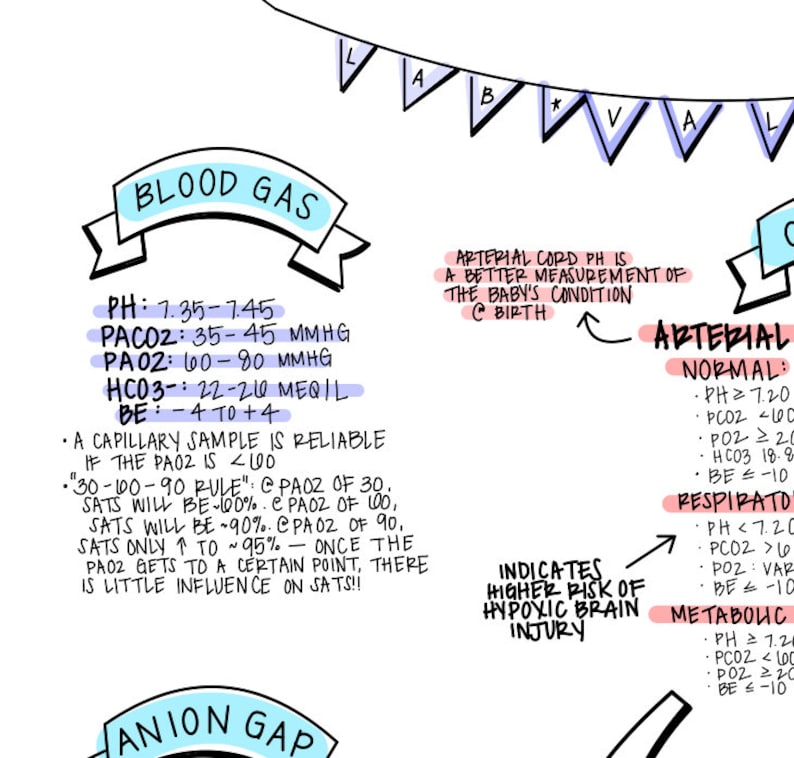 LAB * VAL
BLOOD GAS
PH: 7.35-7.45
PACO2: 35-45 MMHG
PAO2: 60-80 MMHG
HCO3-: 22-26 MEQ/L
BE: -4 TO +4
· A CAPILLARY SAMPLE IS RELIABLE
IF THE PAO2 IS <60
· "30-60-90 RULE": @ PAO2 OF 30,
SATS WILL BE ~60%. @ PAO2 OF 60,
SATS WILL BE ~90%. @ PAO2 OF 90,
SATS ONLY ↑ TO ~95% — ONCE THE
PAO2 GETS TO A CERTAIN POINT, THERE
IS LITTLE INFLUENCE ON SATS!!
ANION GAP
ARTERIAL CORD PH IS
A BETTER MEASUREMENT OF
THE BABY'S CONDITION
@ BIRTH
ARTERIAL
NORMAL:
· PH ≥ 7.20
· PCO2 <60
· PO2 ≥ 20
· HCO3 18.8
· BE ≤ -10
RESPIRATO
· PH < 7.20
· PCO2 >6
· PO2: VAR
· BE ≤ -10
INDICATES
HIGHER RISK OF
HYPOXIC BRAIN
INJURY
METABOLIC
· PH ≥ 7.20
· PCO2 < 60
· PO2 ≥ 20
· BE ≤ -10